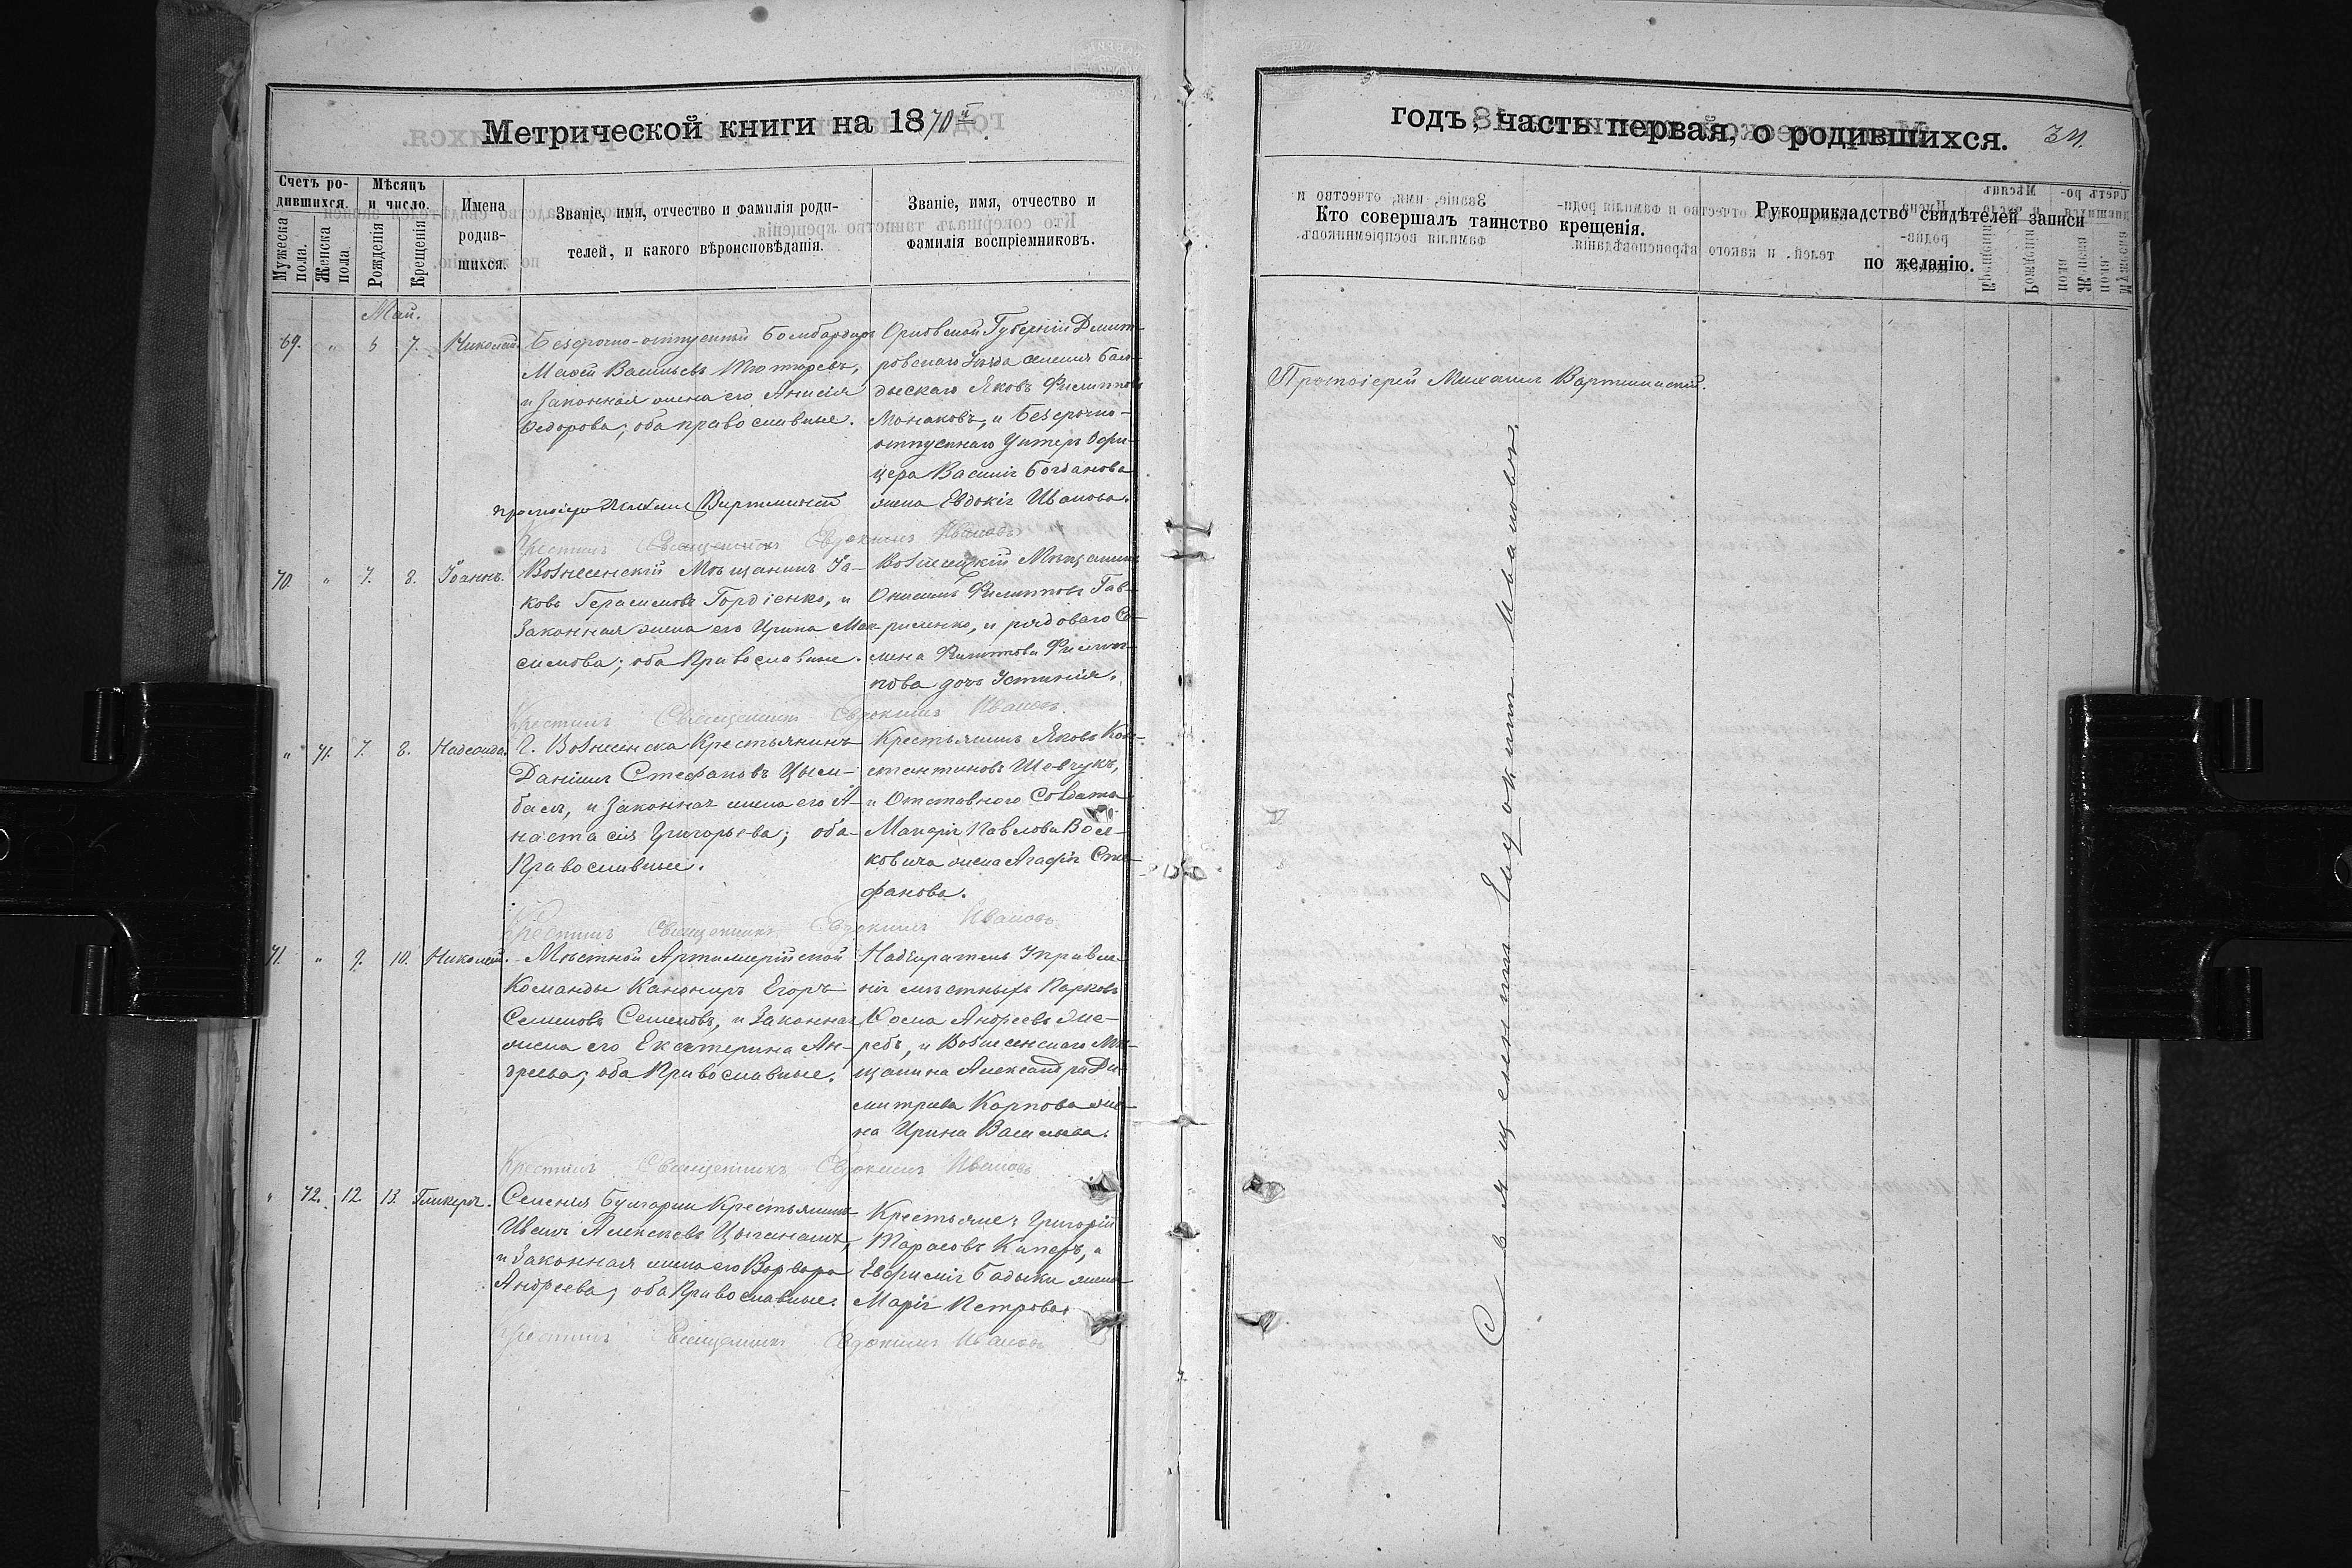 Метрической книги на 1870й
годъ, часть первая, о родившихся.
34.
Счетъ родившихся.
Мужеска пола.
Женска пола
Мѣсяцъ и число.
Рожденія
Крещенія
Имена родив-
шихся.
Званіе, имя, отчество и фамилія роди-
телей, и какого вѣроисповѣданія.
Званіе, имя, отчество и
фамилія воспріемниковъ.
Кто совершалъ таинство крещенія.
Рукоприкладство свидѣтелей записи
по желанію.
Май.
69. " 5 7. Николай.
Безсрочно-отпускный Бомбардиръ
Васильевъ Тютюревъ,
и законная жена его Анисія
Федорова; оба православные.
Орловской Губерніи Дмит-
ровскаго Уѣзда селенія Бал-
дыскаго Яковъ Филипповъ
Монаковъ, и Безсрочно-
отпускнаго Унтеръ Офи-
цера Василія Богданова
жена Евдокія Иванова.
Протоіерей Михаилъ
Крестилъ Священникъ Евдокимъ Ивановъ
70. " 7. 8. Іоаннъ.
Вознесенскій Мѣщанинъ Іа-
ковъ Герасимовъ Гордіенко, и
Законная жена его Ирина Мак-
симова; оба Православные.
Вознесенскій Мѣщанинъ
Онисимъ Филипповъ Гав-
риленко, и рядоваго Се-
мена Филиппова Филип-
пова дочь Устинія.
Крестилъ Священникъ Евдокимъ Ивановъ.
" 71. 7. 8. Надежда.
Г. Вознесенска Крестьянинъ
Даніилъ Стефановъ Цым-
балъ, и законная жена его А-
настасія Григорьева; оба
Православные.
Крестьянинъ Яковъ Кон-
стантиновъ Шевчукъ,
и Отставного Солдата
Макарія Павлова Вой-
ковича жена Агафія Сте-
фанова.
Крестилъ Священникъ Евдокимъ Ивановъ
71. " 9. 10. Николай.
Мѣстной Артиллерійской
Команды Канониръ Егоръ
Семеновъ Семеновъ, и Законная
жена его Екатерина Ан-
дреева; оба Православные.
Надзиратель Управле-
нія мѣстныхъ Парковъ
Косма Андреевъ Же-
ребъ, и Вознесенскаго Мѣ-
щанина Александра Ди-
митріева Карпова же-
на Ирина Васильева.
Крестилъ Священникъ Евдокимъ Ивановъ
" 72. 12 13. Гликерія.
Селенія Булгарки Крестьянинъ
Иванъ Алексѣевъ
и Законная жена его Варвара
Андреева; оба Православные.
Крестьяне: Григорій
Тарасовъ и
Евфимія Бадыки жена
Марія Петрова.
Крестилъ Священникъ Евдокимъ Ивановъ
Протоіерей Михаилъ
Священникъ Евдокимъ Ивановъ.